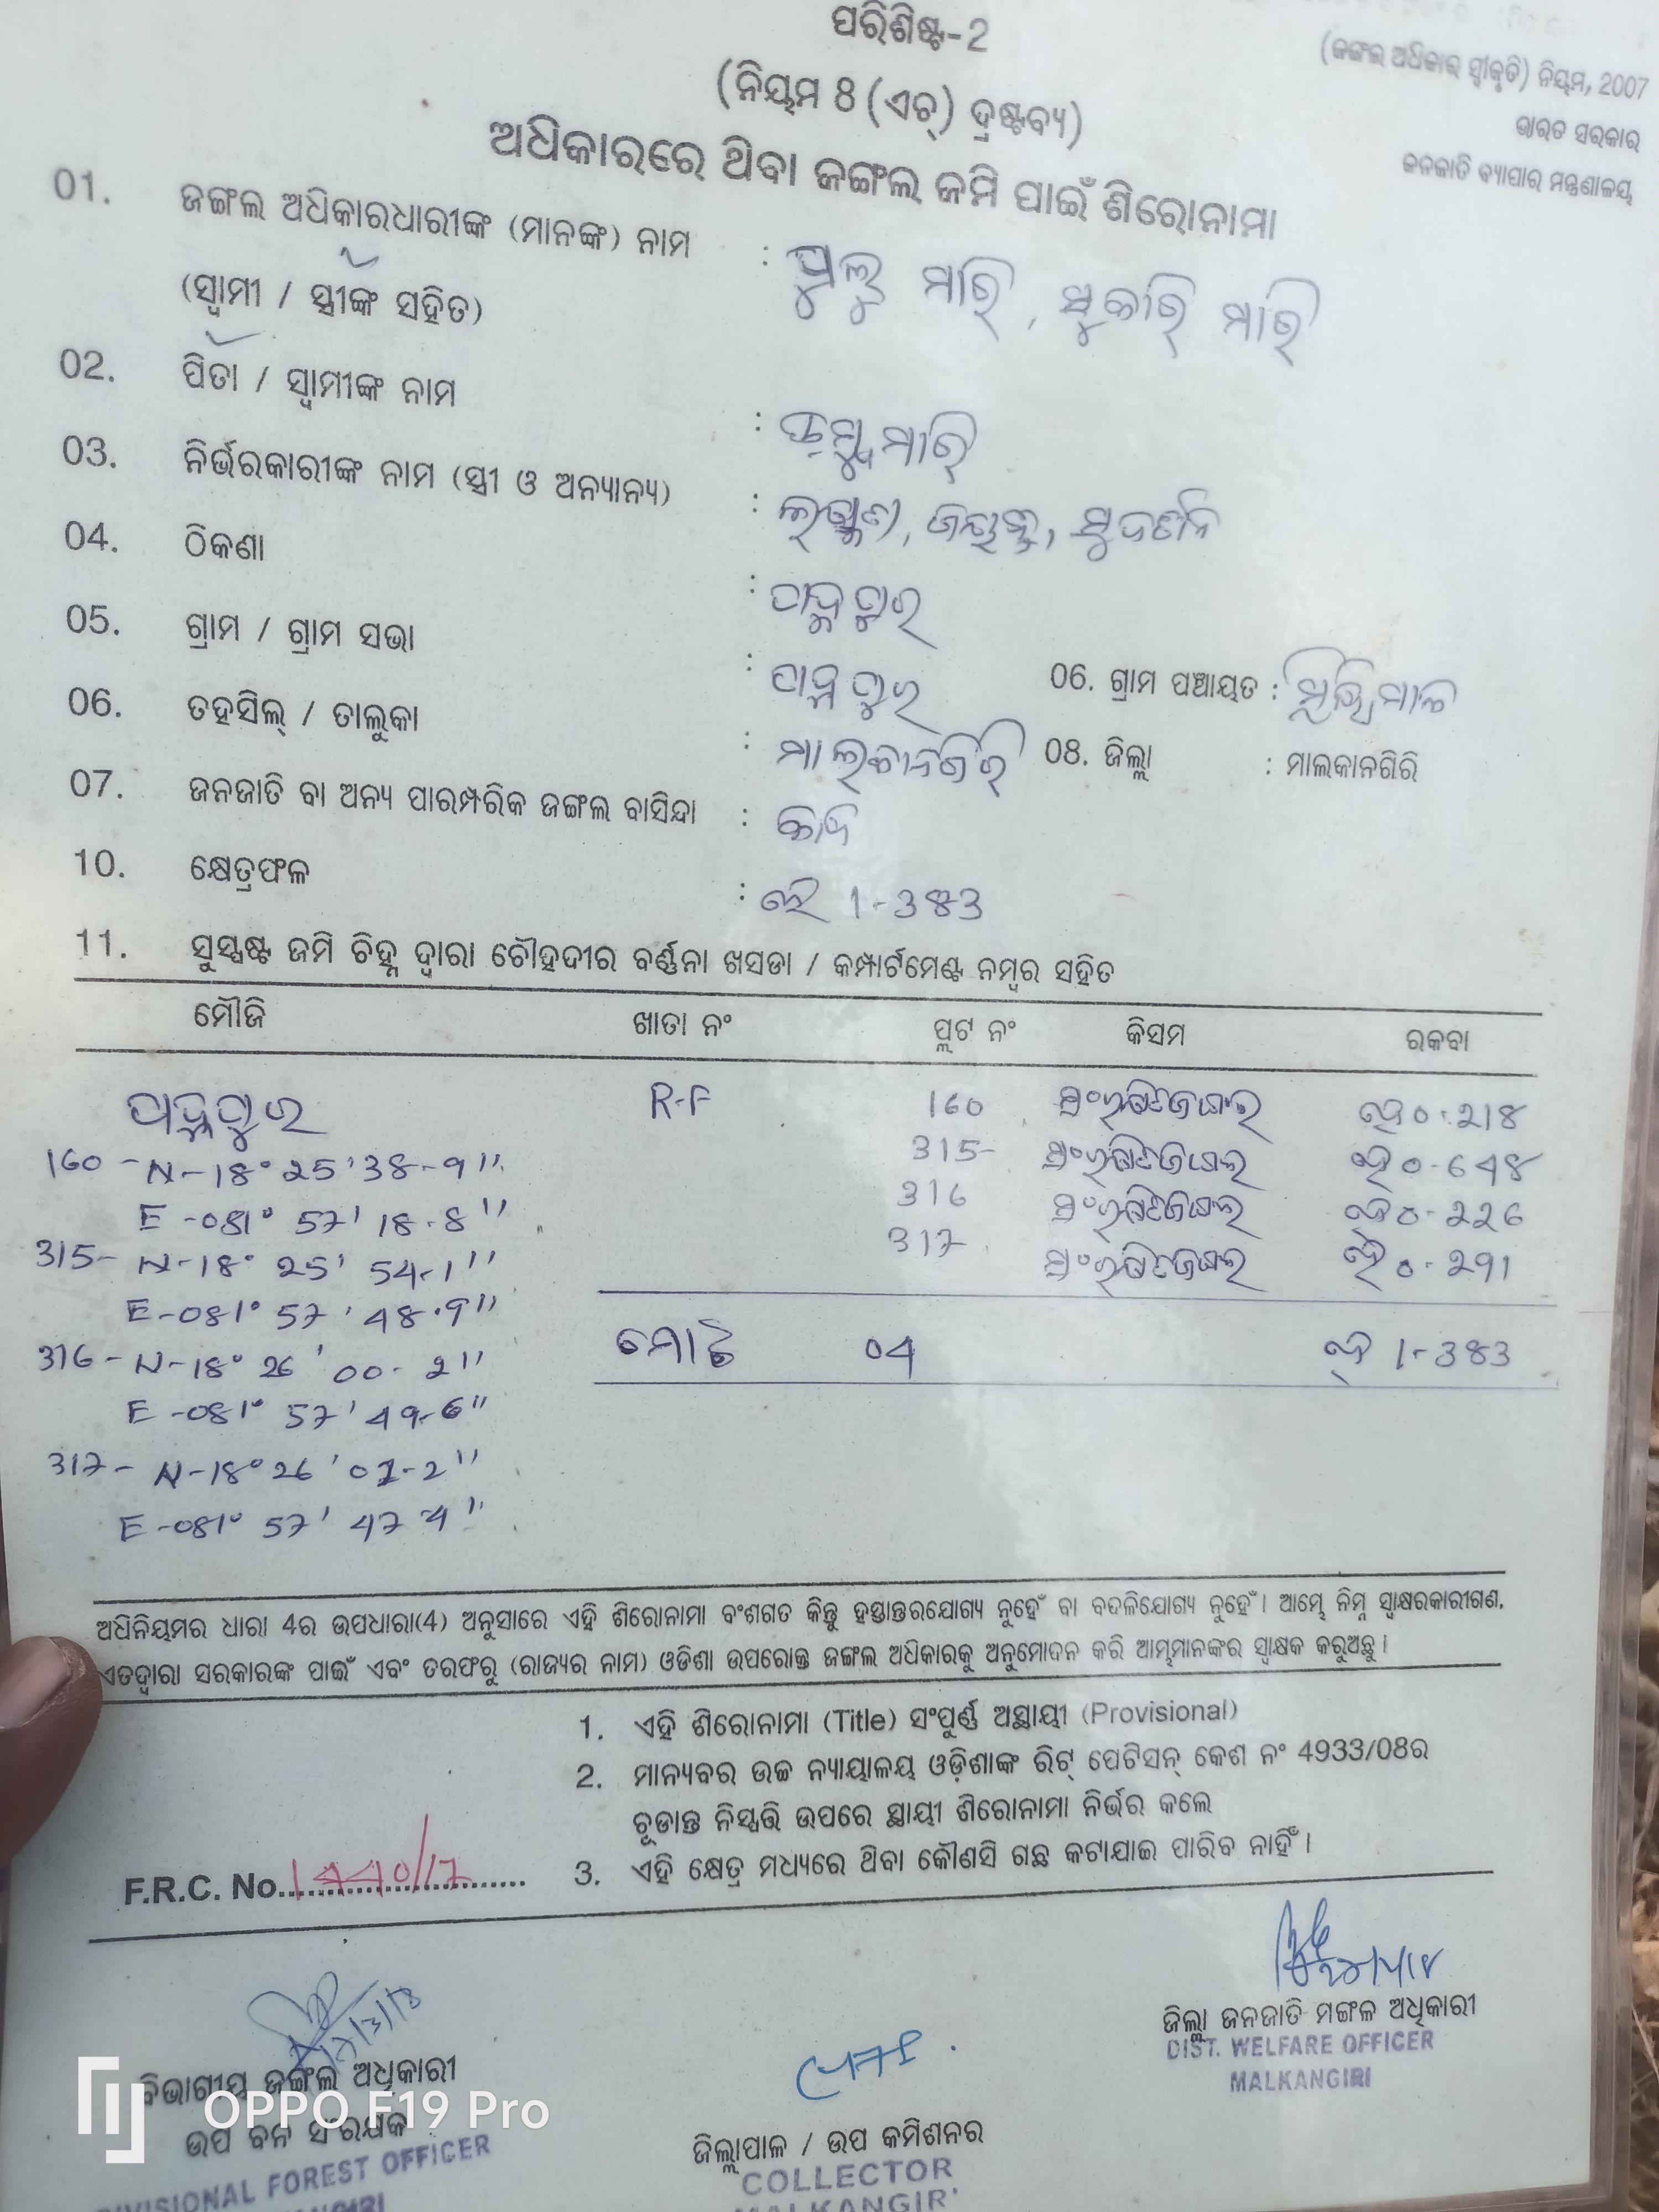 ପରିଶିଷ୍ଟ-2
(ଜଙ୍ଗଲ ଅଧିକାର ସ୍ୱୀକୃତି) ନିୟମ, 2007
ଭାରତ ସରକାର
ଜନଜାତି ବ୍ୟାପାର ମନ୍ତ୍ରଣାଳୟ
(ନିୟମ 8 (ଏଚ୍) ଦ୍ରଷ୍ଟବ୍ୟ)
ଅଧିକାରରେ ଥିବା ଜଙ୍ଗଲ ଜମି ପାଇଁ ଶିରୋନାମା
01. ଜଙ୍ଗଲ ଅଧିକାରଧାରୀଙ୍କ (ମାନଙ୍କ) ନାମ : ମାଡ଼ି, ମାଡ଼ି
(ସ୍ୱାମୀ / ସ୍ତ୍ରୀଙ୍କ ସହିତ)
02. ପିତା / ସ୍ୱାମୀଙ୍କ ନାମ : ମାଡ଼ି
03. ନିର୍ଭରକାରୀଙ୍କ ନାମ (ସ୍ତ୍ରୀ ଓ ଅନ୍ୟାନ୍ୟ) :
04. ଠିକଣା :
05. ଗ୍ରାମ / ଗ୍ରାମ ସଭା : 06. ଗ୍ରାମ ପଞ୍ଚାୟତ :
06. ତହସିଲ୍ / ତାଲୁକା : ମାଲକାନଗିରି 08. ଜିଲ୍ଲା : ମାଲକାନଗିରି
07. ଜନଜାତି ବା ଅନ୍ୟ ପାରମ୍ପରିକ ଜଙ୍ଗଲ ବାସିନ୍ଦା :
10. କ୍ଷେତ୍ରଫଳ : 1-383
11. ସୁସ୍ପଷ୍ଟ ଜମି ଚିହ୍ନ ଦ୍ୱାରା ଚୌହଦୀର ବର୍ଣ୍ଣନା ଖସଡା / କମ୍ପାର୍ଟମେଣ୍ଟ ନମ୍ବର ସହିତ
ମୌଜି ଖାତା ନଂ ପ୍ଲଟ ନଂ କିସମ ରକବା
R-F 160 ସଂରକ୍ଷିତ ଜଙ୍ଗଲ 0.218
160 - N-18° 25' 38-9"
315 ସଂରକ୍ଷିତ ଜଙ୍ଗଲ 0-648
E-081° 57' 18.8"
316 ସଂରକ୍ଷିତ ଜଙ୍ଗଲ 0-226
315- N-18° 25' 54-1"
317 ସଂରକ୍ଷିତ ଜଙ୍ଗଲ 0-291
E-081° 57' 48.9"
316- N-18° 26' 00-2"
ମୋଟ 04 1-383
E-081° 57' 49-6"
317- N-18° 26' 01-2"
E-081° 57' 47 4"
ଅଧିନିୟମର ଧାରା 4ର ଉପଧାରା(4) ଅନୁସାରେ ଏହି ଶିରୋନାମା ବଂଶଗତ କିନ୍ତୁ ହସ୍ତାନ୍ତରଯୋଗ୍ୟ ନୁହେଁ ବା ବଦଳିଯୋଗ୍ୟ ନୁହେଁ। ଆମ୍ଭେ ନିମ୍ନ ସ୍ୱାକ୍ଷରକାରୀଗଣ,
ଏତଦ୍ୱାରା ସରକାରଙ୍କ ପାଇଁ ଏବଂ ତରଫରୁ (ରାଜ୍ୟର ନାମ) ଓଡିଶା ଉପରୋକ୍ତ ଜଙ୍ଗଲ ଅଧିକାରକୁ ଅନୁମୋଦନ କରି ଆମ୍ଭମାନଙ୍କର ସ୍ୱାକ୍ଷକ କରୁଅଛୁ।
1. ଏହି ଶିରୋନାମା (Title) ସଂପୁର୍ଣ୍ଣ ଅସ୍ଥାୟୀ (Provisional)
2. ମାନ୍ୟବର ଉଚ୍ଚ ନ୍ୟାୟାଳୟ ଓଡ଼ିଶାଙ୍କ ରିଟ୍ ପେଟିସନ୍ କେଶ ନଂ 4933/08ର
ଚୂଡାନ୍ତ ନିସ୍ପତ୍ତି ଉପରେ ସ୍ଥାୟୀ ଶିରୋନାମା ନିର୍ଭର କଲେ
3. ଏହି କ୍ଷେତ୍ର ମଧ୍ୟରେ ଥିବା କୌଣସି ଗଛ କଟାଯାଇ ପାରିବ ନାହିଁ।
F.R.C. No.
ଜିଲ୍ଲା ଜନଜାତି ମଙ୍ଗଳ ଅଧିକାରୀ
DIST. WELFARE OFFICER
MALKANGIRI
ବିଭାଗୀୟ ଜଙ୍ଗଲ ଅଧିକାରୀ
OPPO F19 Pro
ଉପ ବନ ସଂରକ୍ଷକ
ଜିଲ୍ଲାପାଳ / ଉପ କମିଶନର
DIVISIONAL FOREST OFFICER
COLLECTOR